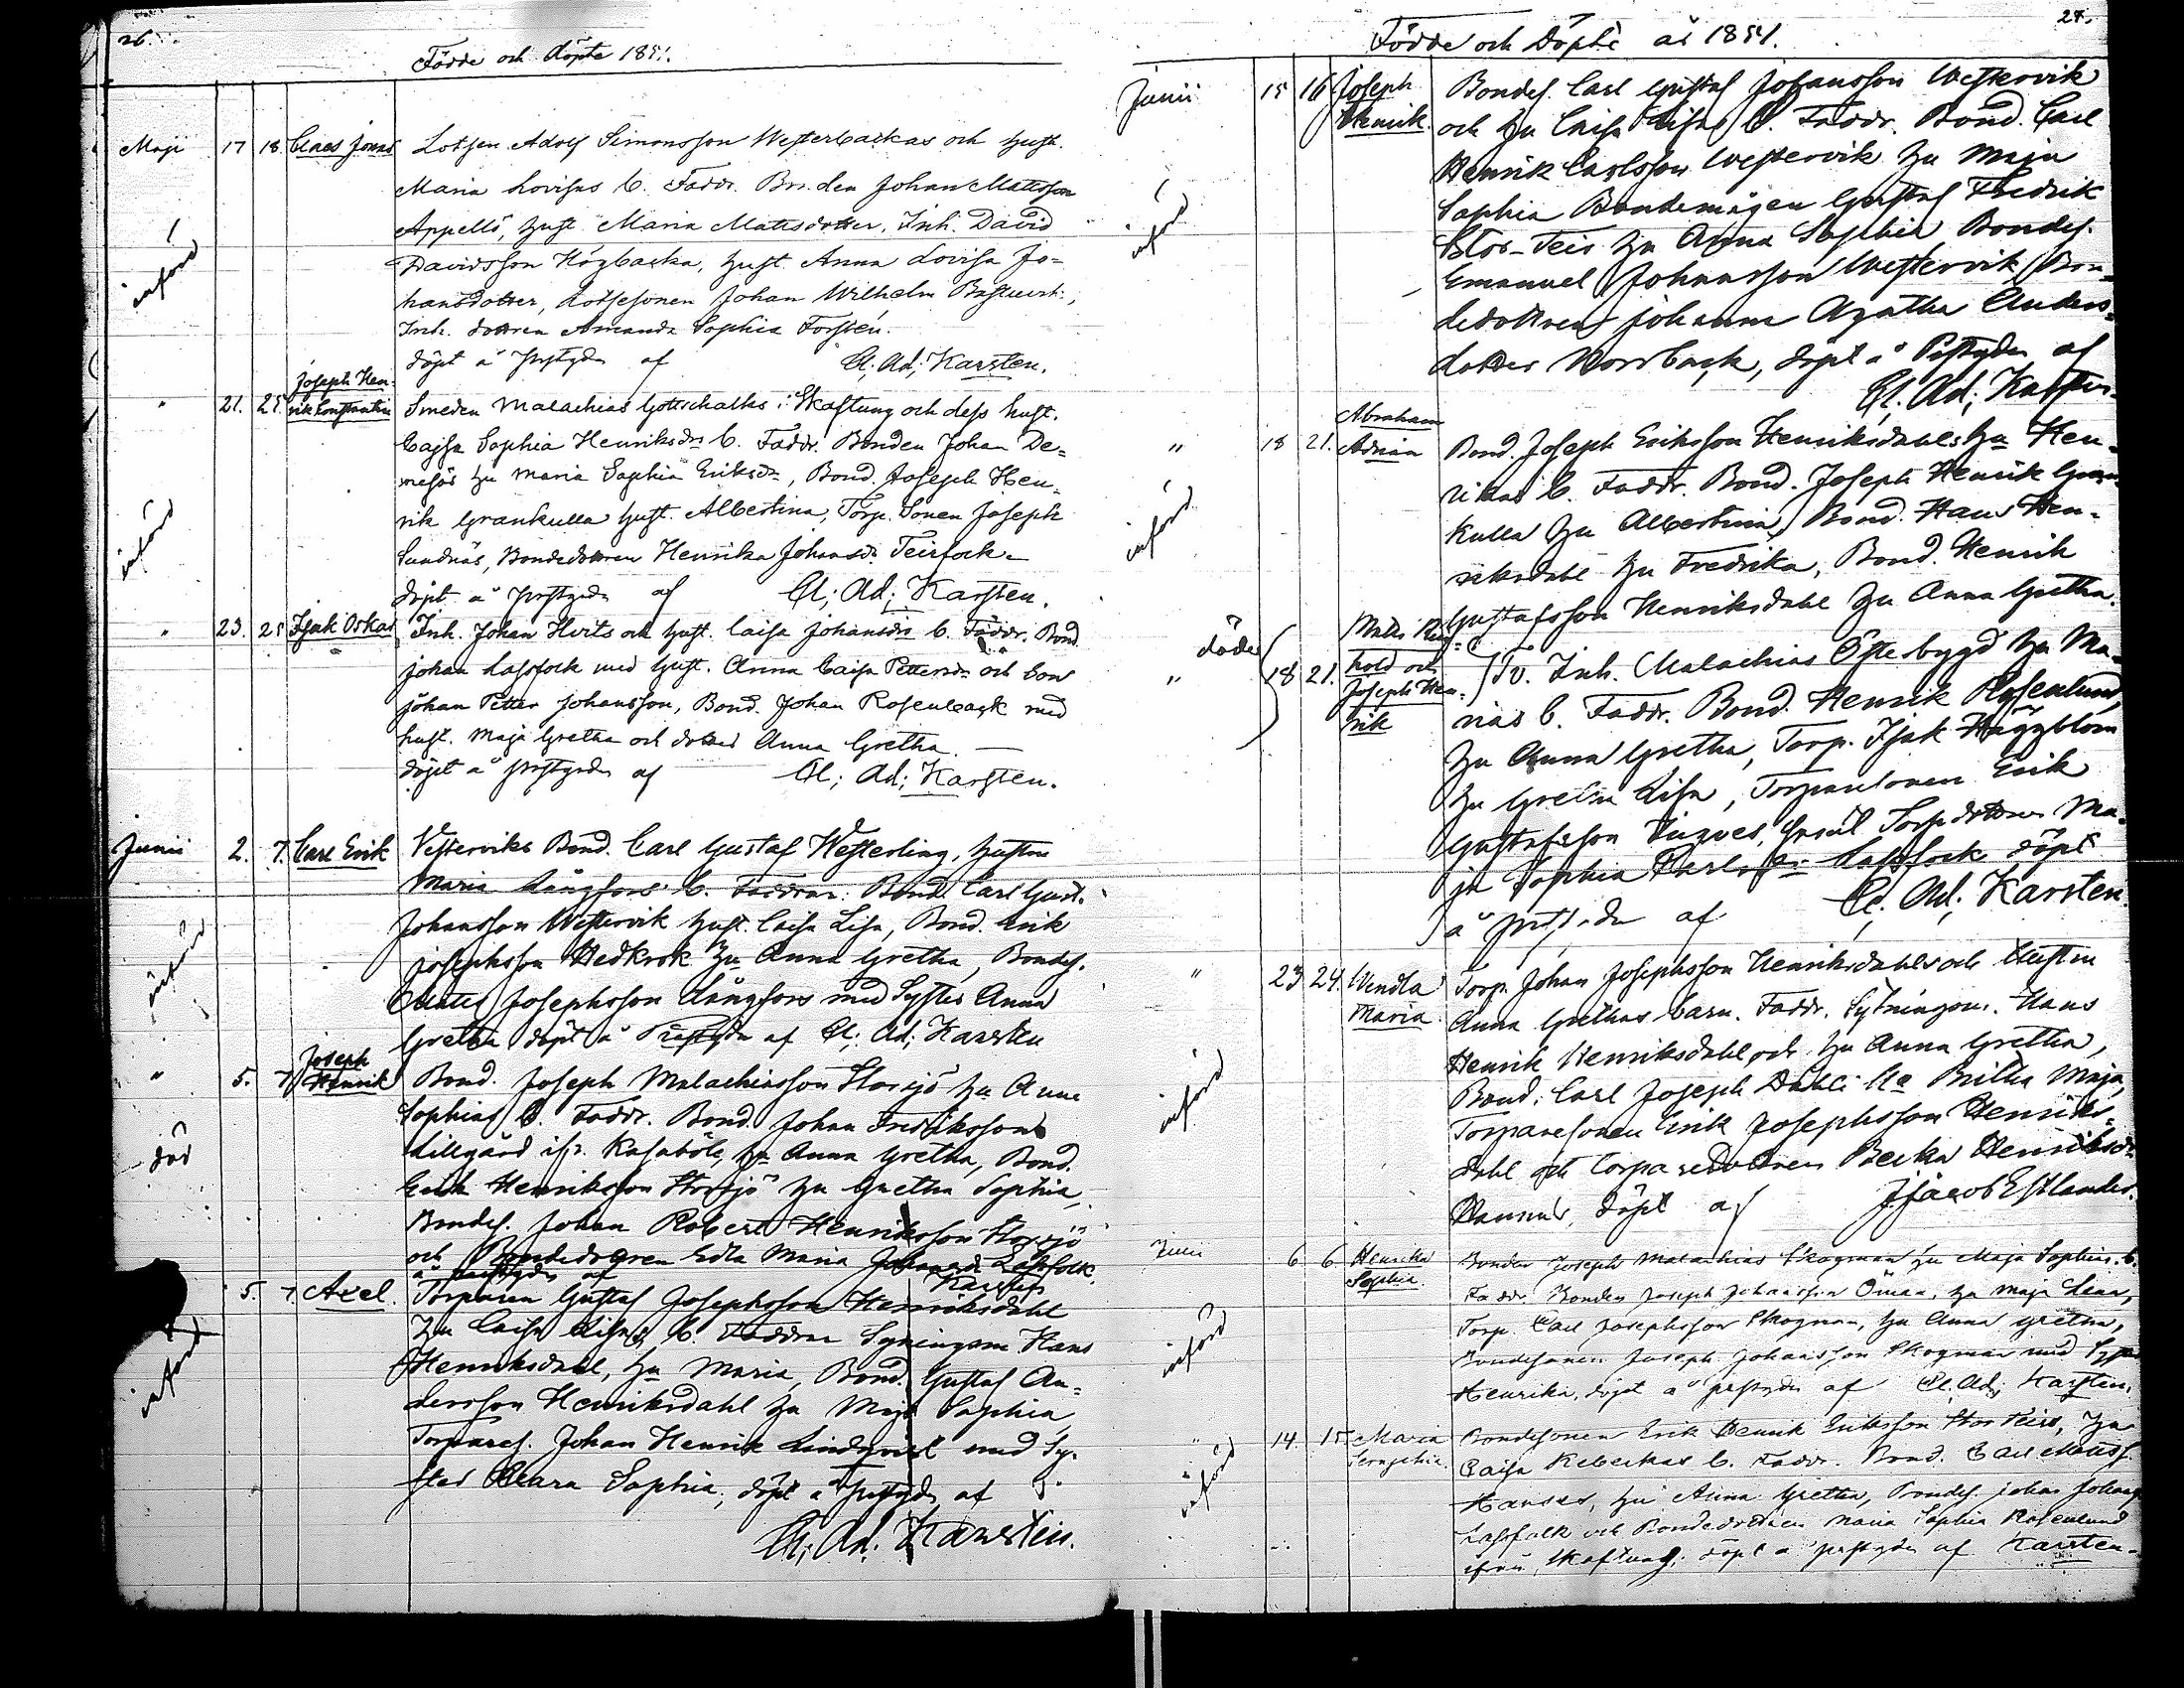 26.
Födde och döpte 1851.
Maji 17 18. Claes Jonas Lotsen Adolf Simonsson Westerbackas och hust.
Maria Lovisas b. Faddr. Bonden Johan Mattsson
införd
Appellö, hust. Maria Mattsdotter, Inh. David
Davidsson Högbacka, hust. Anna Lovisa Jo-
hansdotter, Lotssonen Johan Wilhelm
Inh. dottren Amanda Sophia Forstén.
döpt å prestgden af Cl; Ad; Karsten.
" 21. 25. Joseph Hen-
rik Constantin Smeden Malachias Gottschalks i Skaftung och dess hust.
Cajsa Sophia Henriksdrs b. Faddr. Bonden Johan De-
hu Maria Sophia Eriksdr, Bond. Joseph Hen-
införd
rik Grankulla hust. Albertina, Torp. Sonen Joseph
Sundnäs, Bondedottren Henrika Johansdr Teirfock.
döpt å prestgden af Cl; Ad; Karsten.
" 23. 25 Isak Oskar Inh. Johan Hvits och hust. Caisa Johansdrs b. Faddr. Bond
Johan Lassfock med hust. Anna Caisa Pettersdr och Son
Johan Petter Johansson, Bond. Johan Rosenback med
hust. Maja Gretha och dotter Anna Gretha.
döpt å prestgden af Cl; Ad; Karsten.
Junii 2. 7. Carl Erik Vesterviks Bond. Carl Gustaf Westerling, hustru
Maria Långfors b. Faddrar. Bond. Carl Gust.
införd
Johansson Westervik hust. Caisa Lisa, Bond. Erik
Josephsson Hedkrok hu Anna Gretha, Bondes.
Matts Josephsson Långfors med Syster Anna
Gretha döpt å Prestgden af Cl; Ad; Karsten
" 5. 7 Joseph
Henrik Bond. Joseph Malachiasson Storsjö hu Anna
Sophias b. Faddr. Bond. Johan Fredriksson
död
Lillgård ifr. Kasaböle, hu Anna Gretha, Bond.
Erik Henriksson Storsjö hu Gretha Sophia,
Bondes. Johan Robert Henriksson Storsjö
och Bondedottren Edla Maria Lassfolk.
å prestgden af Karsten
5. 7. Axel. Torparen Gustaf Josephsson Henriksdahl
hu Caisa Lisas b. Faddrar Sytningsm. Hans
införd
Henriksdahl, hu Maria, Bond. Gustaf An-
dersson Henriksdahl hu Maja Sophia
Torpares. Johan Henrik Lindqvist med Sy-
ster Clara Sophia, döpt å prestgden af
Cl; Ad. Karsten.
Födde och Döpte år 1851.
27.
Junii 15 16 Joseph
Henrik. Bondes. Carl Gustaf Johansson Westervik
och hu Caisa Lisas b. Faddr. Bond. Carl
Henrik Carlsson Westervik hu Maja
införd
Sophia Bondemågen Gustaf Fredrik
Stor-Teir hu Anna Sophia, Bondes.
Emanuel Johansson Westervik, Bon-
dedottren Johanna Agatha Anders-
dotter Norrback, döpt å Prestgden af
Cl. Ad; Karsten
" 18 21. Abraham
Adrian Bond. Joseph Eriksson Henriksdahls hu Hen-
rikas b. Faddr. Bond. Joseph Henrik Gran-
införd
kulla hu Albertina, Bond. Hans Hen-
riksdahl hu Fredrika, Bond. Henrik
Gustafsson Henriksdahl hu Anna Gretha.
döde
" 18 21. Matts
hold och
Joseph Hen-
rik Tv. Inh. Malachias Österbygd hu Ma-
rias b. Faddr. Bond. Henrik Rosenlund,
hu Anna Gretha, Torp. Isak Häggblom
hu Gretha Lisa, Torparesonen Erik
Gustafsson Torpdottren Ma-
ja Sophia Lassfock döpt
å prestgden af Cl. Ad; Karsten
" 23 24. Wendla
Maria Torp. Johan Josephsson Henriksdahls och Hustru
Anna Grethas barn. Faddr. Sytningsm. Hans
införd
Henrik Henriksdahl, och hu Anna Gretha,
Bond. Carl Joseph Dahl Britha Maja,
Torparesonen Erik Josephsson Henriks-
dahl och torparedottren Henriksdr
döpt af J. Jacob Estlander.
Julii 6 6 Henrika
Sophia. Bonden Joseph Malachias Skogman hu Maja Sophias b.
Faddr. Bonden Joseph Johansson Öman, hu Maja Lena,
införd
Torp. Carl Josephsson Skogman, hu Anna Gretha,
Bondesonen Joseph Johansson Skogman med Syster
Henrika, döpt å prestgden af Cl. Ad; Karsten.
" 14. 15. Maria
Seraphia. Bondesonen Erik Henrik Eriksson Stor Teirs, hu
Caisa Rebeckas b. Faddr. Bond. Carl Mattss.
införd
Hanses, hu Anna Gretha, Bondes. Johan Johanss
Lassfolk och Bondedottren Maria Sophia Rosenlund
ifrån Skaftung; döpt å prestgden af Karsten